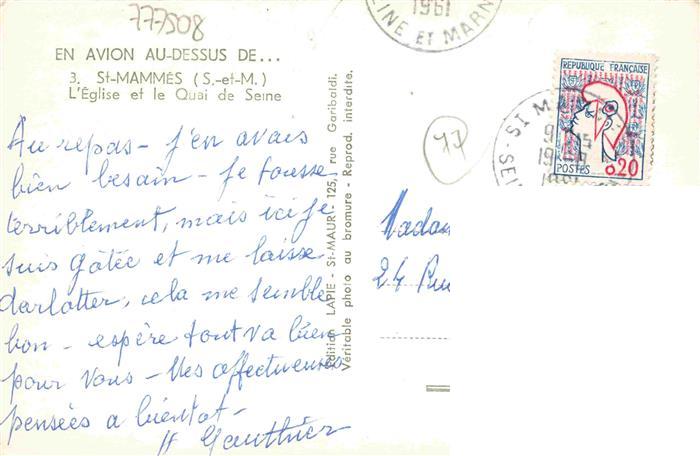 777508
EN AVION AU-DESSUS DE...
3. St-MAMMÈS (S.-et-M.)
L'Église et le Quai de Seine
Au repas - j'en avais
bien besoin - Je tousse
terriblement, mais ici je
suis gâtée et me laisse
darlotter, cela me semble
bon - espère tout va bien
pour vous - Mes affectueuses
pensées a bientot -
H Gauthier
Édition LAPIE - St-MAUR. 125, rue Garibaldi.
Véritable photo au bromure - Reprod. interdite.
1961
SEINE ET MARN
77
ST MA
SEI
REPUBLIQUE FRANÇAISE
POSTES
0,20
Madam
24 Rue